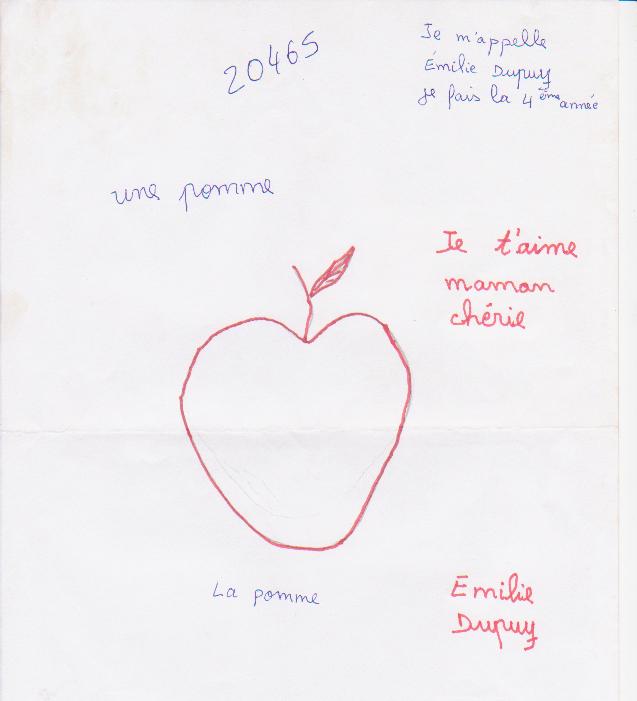 20465
Je m'appelle
Émilie Dupuy
je fais la 4ème année
une pomme
Je t'aime
maman
chérie
La pomme
Emilie
Dupuy